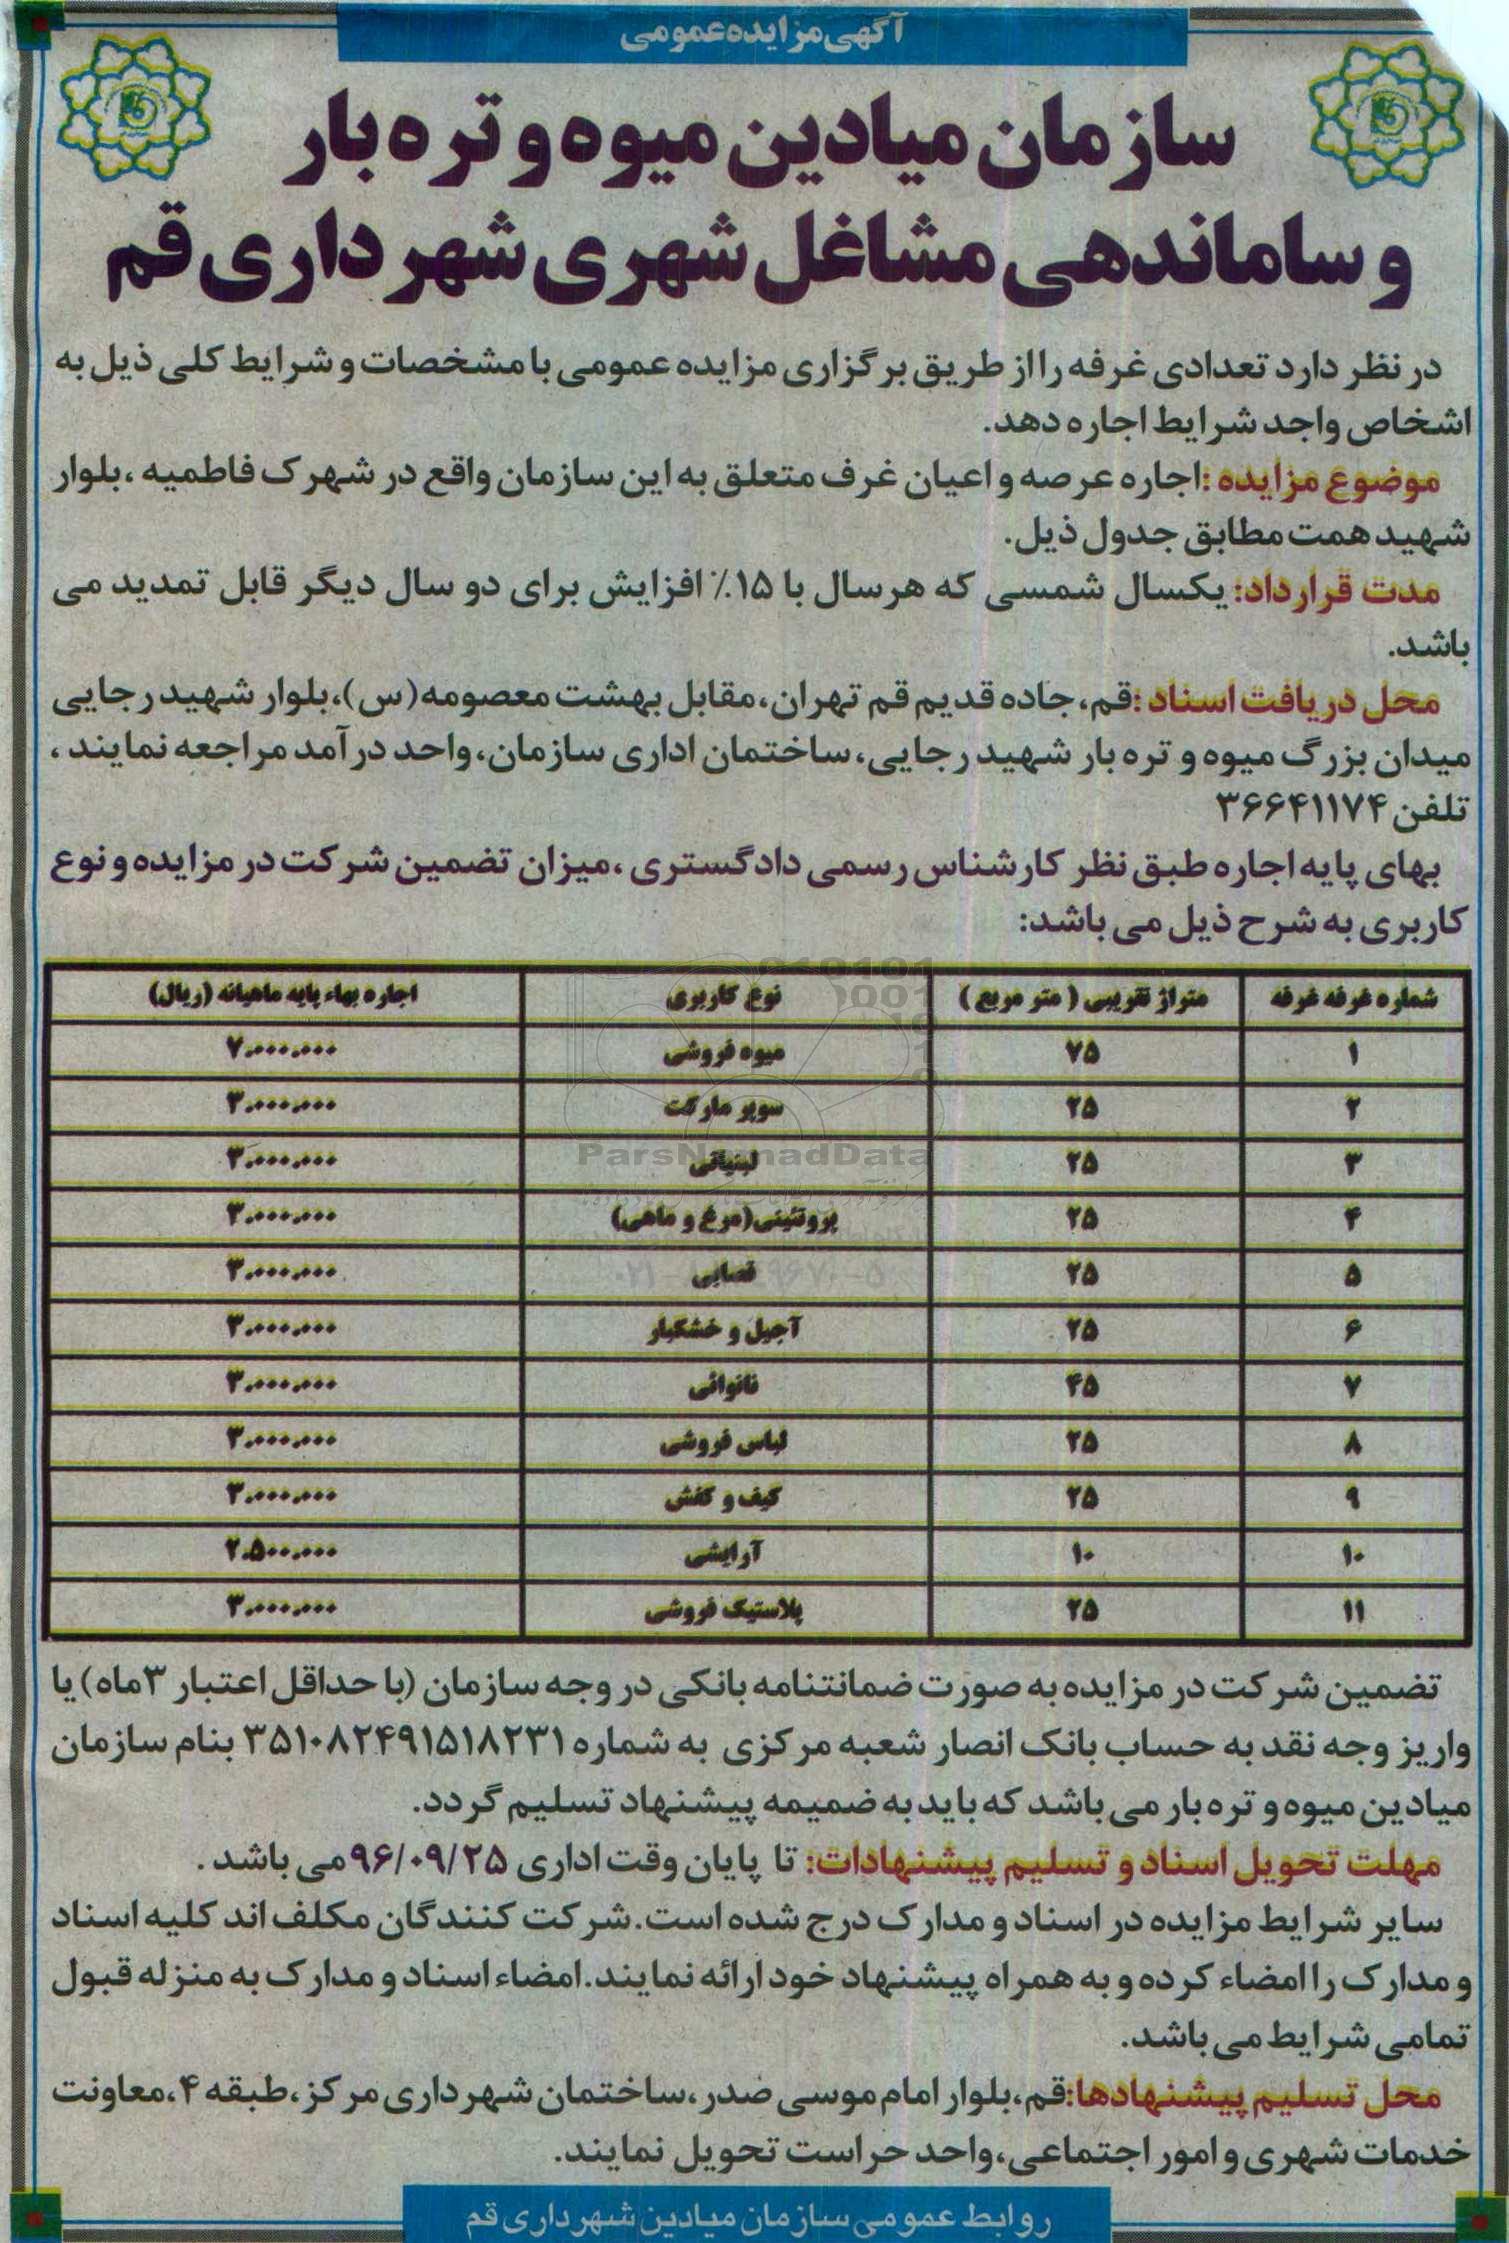 آگهی مزایده عمومی
سازمان میادین میوه و تره بار
و ساماندهی مشاغل شهری شهرداری قم
در نظر دارد تعدادی غرفه را از طریق برگزاری مزایده عمومی با مشخصات و شرایط کلی ذیل به
اشخاص واجد شرایط اجاره دهد.
موضوع مزایده :اجاره عرصه و اعیان غرف متعلق به این سازمان واقع در شهرک فاطمیه ،بلوار
شهید همت مطابق جدول ذیل.
مدت قرارداد: یکسال شمسی که هرسال با ۱۵٪ افزایش برای دو سال دیگر قابل تمدید می
باشد.
محل دریافت اسناد :قم، جاده قدیم قم تهران، مقابل بهشت معصومه(س)،بلوار شهید رجایی
میدان بزرگ میوه و تره بار شهید رجایی، ساختمان اداری سازمان، واحد درآمد مراجعه نمایند ،
تلفن ۳۶۶۴۱۱۷۴
بهای پایه اجاره طبق نظر کارشناس رسمی دادگستری ،میزان تضمین شرکت در مزایده و نوع
کاربری به شرح ذیل می باشد:
شماره غرفه غرفه	متراژ تقریبی ( متر مربع )	نوع کاربری	اجاره بهاء پایه ماهیانه (ریال)
۱	۷۵	میوه فروشی	۷.۰۰۰.۰۰۰
۲	۲۵	سوپر مارکت	۳.۰۰۰.۰۰۰
۳	۲۵	لبنیاتی	۳.۰۰۰.۰۰۰
۴	۲۵	پروتئینی(مرغ و ماهی)	۳.۰۰۰.۰۰۰
۵	۲۵	قصابی	۳.۰۰۰.۰۰۰
۶	۲۵	آجیل و خشکبار	۳.۰۰۰.۰۰۰
۷	۴۵	نانوائی	۳.۰۰۰.۰۰۰
۸	۲۵	لباس فروشی	۳.۰۰۰.۰۰۰
۹	۲۵	کیف و کفش	۳.۰۰۰.۰۰۰
۱۰	۱۰	آرایشی	۲.۵۰۰.۰۰۰
۱۱	۲۵	پلاستیک فروشی	۳.۰۰۰.۰۰۰
ParsNamadData
تضمین شرکت در مزایده به صورت ضمانتنامه بانکی در وجه سازمان (با حداقل اعتبار ۳ماه) یا
واریز وجه نقد به حساب بانک انصار شعبه مرکزی به شماره ۳۵۱۰۸۲۴۹۱۵۱۸۲۳۱ بنام سازمان
میادین میوه و تره بار می باشد که باید به ضمیمه پیشنهاد تسلیم گردد.
مهلت تحویل اسناد و تسلیم پیشنهادات: تا پایان وقت اداری ۹۶/۰۹/۲۵می باشد .
سایر شرایط مزایده در اسناد و مدارک درج شده است.شرکت کنندگان مکلف اند کلیه اسناد
و مدارک را امضاء کرده و به همراه پیشنهاد خود ارائه نمایند.امضاء اسناد و مدارک به منزله قبول
تمامی شرایط می باشد.
محل تسلیم پیشنهادها:قم،بلوار امام موسی صدر،ساختمان شهرداری مرکز،طبقه ۴،معاونت
خدمات شهری و امور اجتماعی،واحد حراست تحویل نمایند.
روابط عمومی سازمان میادین شهرداری قم